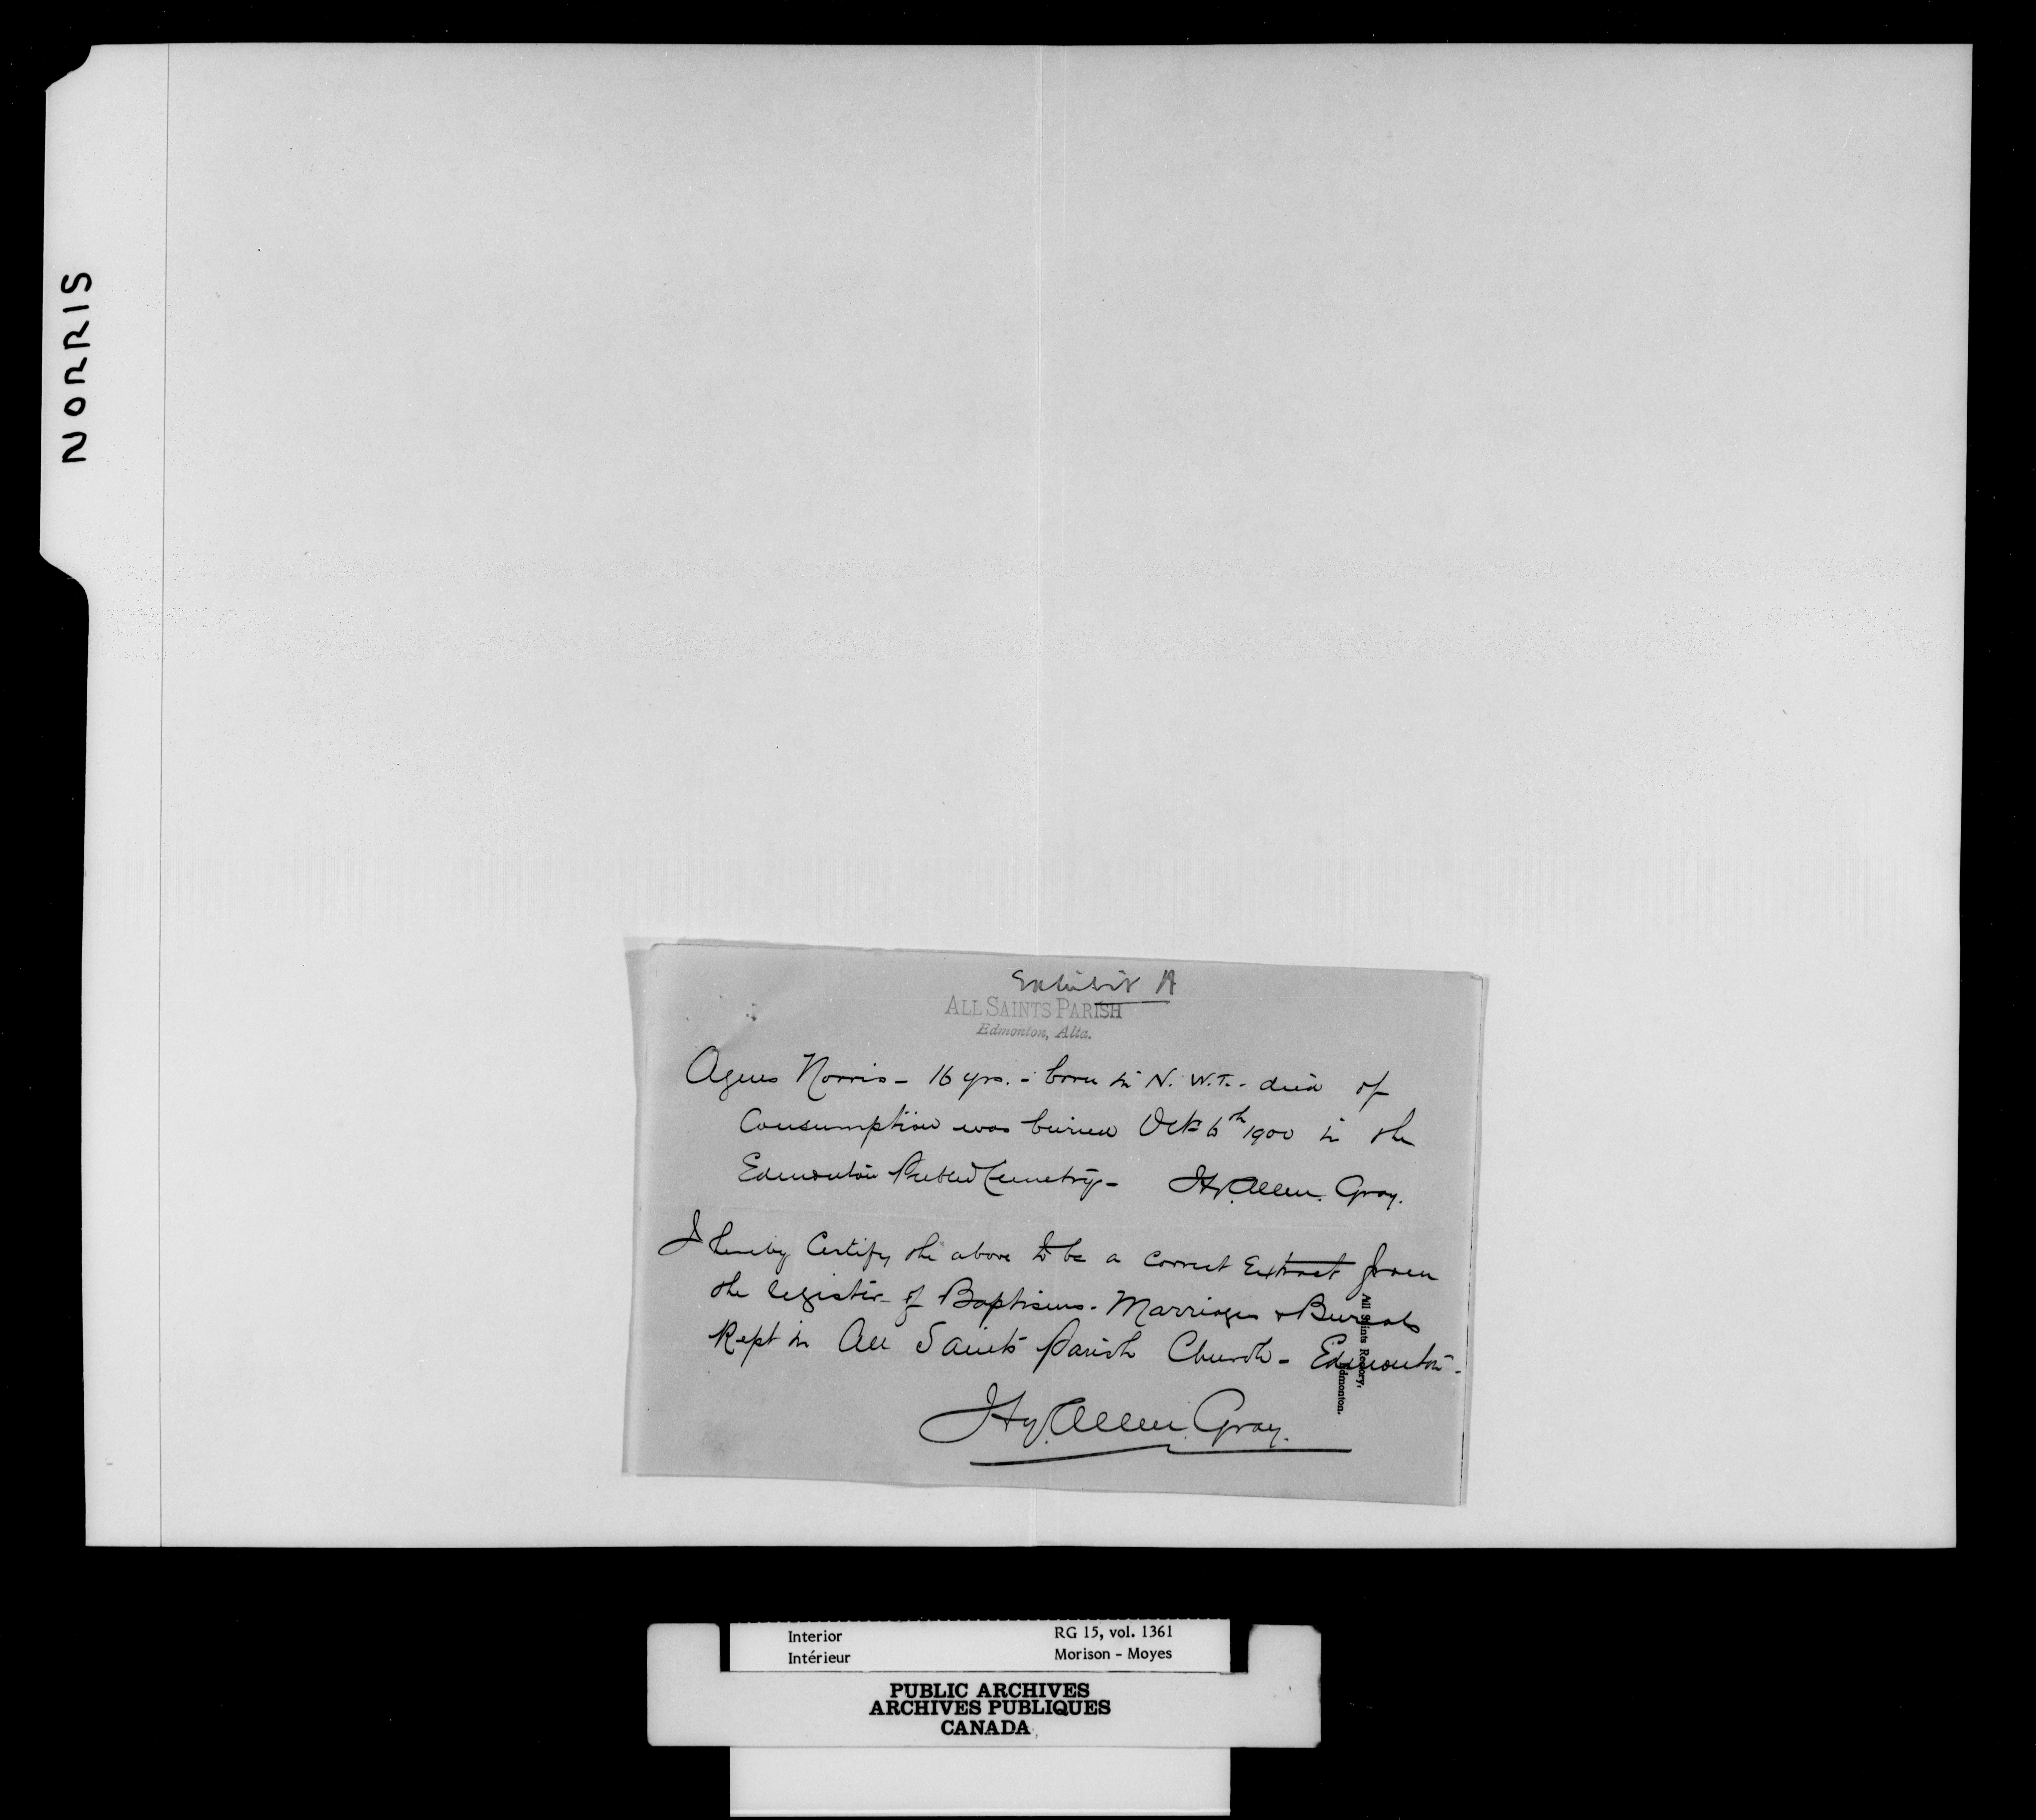 NORRIS
Exhibit A
ALL SAINTS PARISH
Edmonton, Alta.
Agnes Norris - 16 yrs. - born in N. W. T. - died of
Consumption was buried Oct 6th 1900 in the
Edmonton Public Cemetry - Hy. Allen. Gray.
I hereby Certify the above to be a correct Extract from
the register of Baptisms. Marriages & Burials
Kept in All Saints Parish Church - Edmonton -
All Saints Rectory,
Edmonton.
Hy. Allen. Gray.
Interior RG 15, vol. 1361
Intérieur Morison - Moyes
PUBLIC ARCHIVES
ARCHIVES PUBLIQUES
CANADA